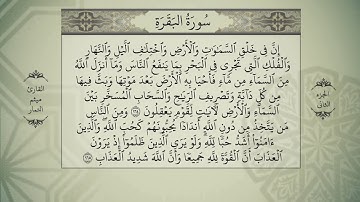 سُورَةُ البَقَرَةِ
إِنَّ فِي خَلْقِ ٱلسَّمَٰوَٰتِ وَٱلْأَرْضِ وَٱخْتِلَٰفِ ٱلَّيْلِ وَٱلنَّهَارِ
وَٱلْفُلْكِ ٱلَّتِي تَجْرِي فِي ٱلْبَحْرِ بِمَا يَنفَعُ ٱلنَّاسَ وَمَآ أَنزَلَ ٱللَّهُ
مِنَ ٱلسَّمَآءِ مِن مَّآءٍ فَأَحْيَا بِهِ ٱلْأَرْضَ بَعْدَ مَوْتِهَا وَبَثَّ فِيهَا
مِن كُلِّ دَآبَّةٍ وَتَصْرِيفِ ٱلرِّيَٰحِ وَٱلسَّحَابِ ٱلْمُسَخَّرِ بَيْنَ
ٱلسَّمَآءِ وَٱلْأَرْضِ لَءَايَٰتٍ لِّقَوْمٍ يَعْقِلُونَ ١٦٤ وَمِنَ ٱلنَّاسِ
مَن يَتَّخِذُ مِن دُونِ ٱللَّهِ أَندَادًا يُحِبُّونَهُمْ كَحُبِّ ٱللَّهِ وَٱلَّذِينَ
ءَامَنُوٓا۟ أَشَدُّ حُبًّا لِّلَّهِ وَلَوْ يَرَى ٱلَّذِينَ ظَلَمُوٓا۟ إِذْ يَرَوْنَ
ٱلْعَذَابَ أَنَّ ٱلْقُوَّةَ لِلَّهِ جَمِيعًا وَأَنَّ ٱللَّهَ شَدِيدُ ٱلْعَذَابِ ١٦٥
الجزء
الثاني
القارئ
ميثم
التمار